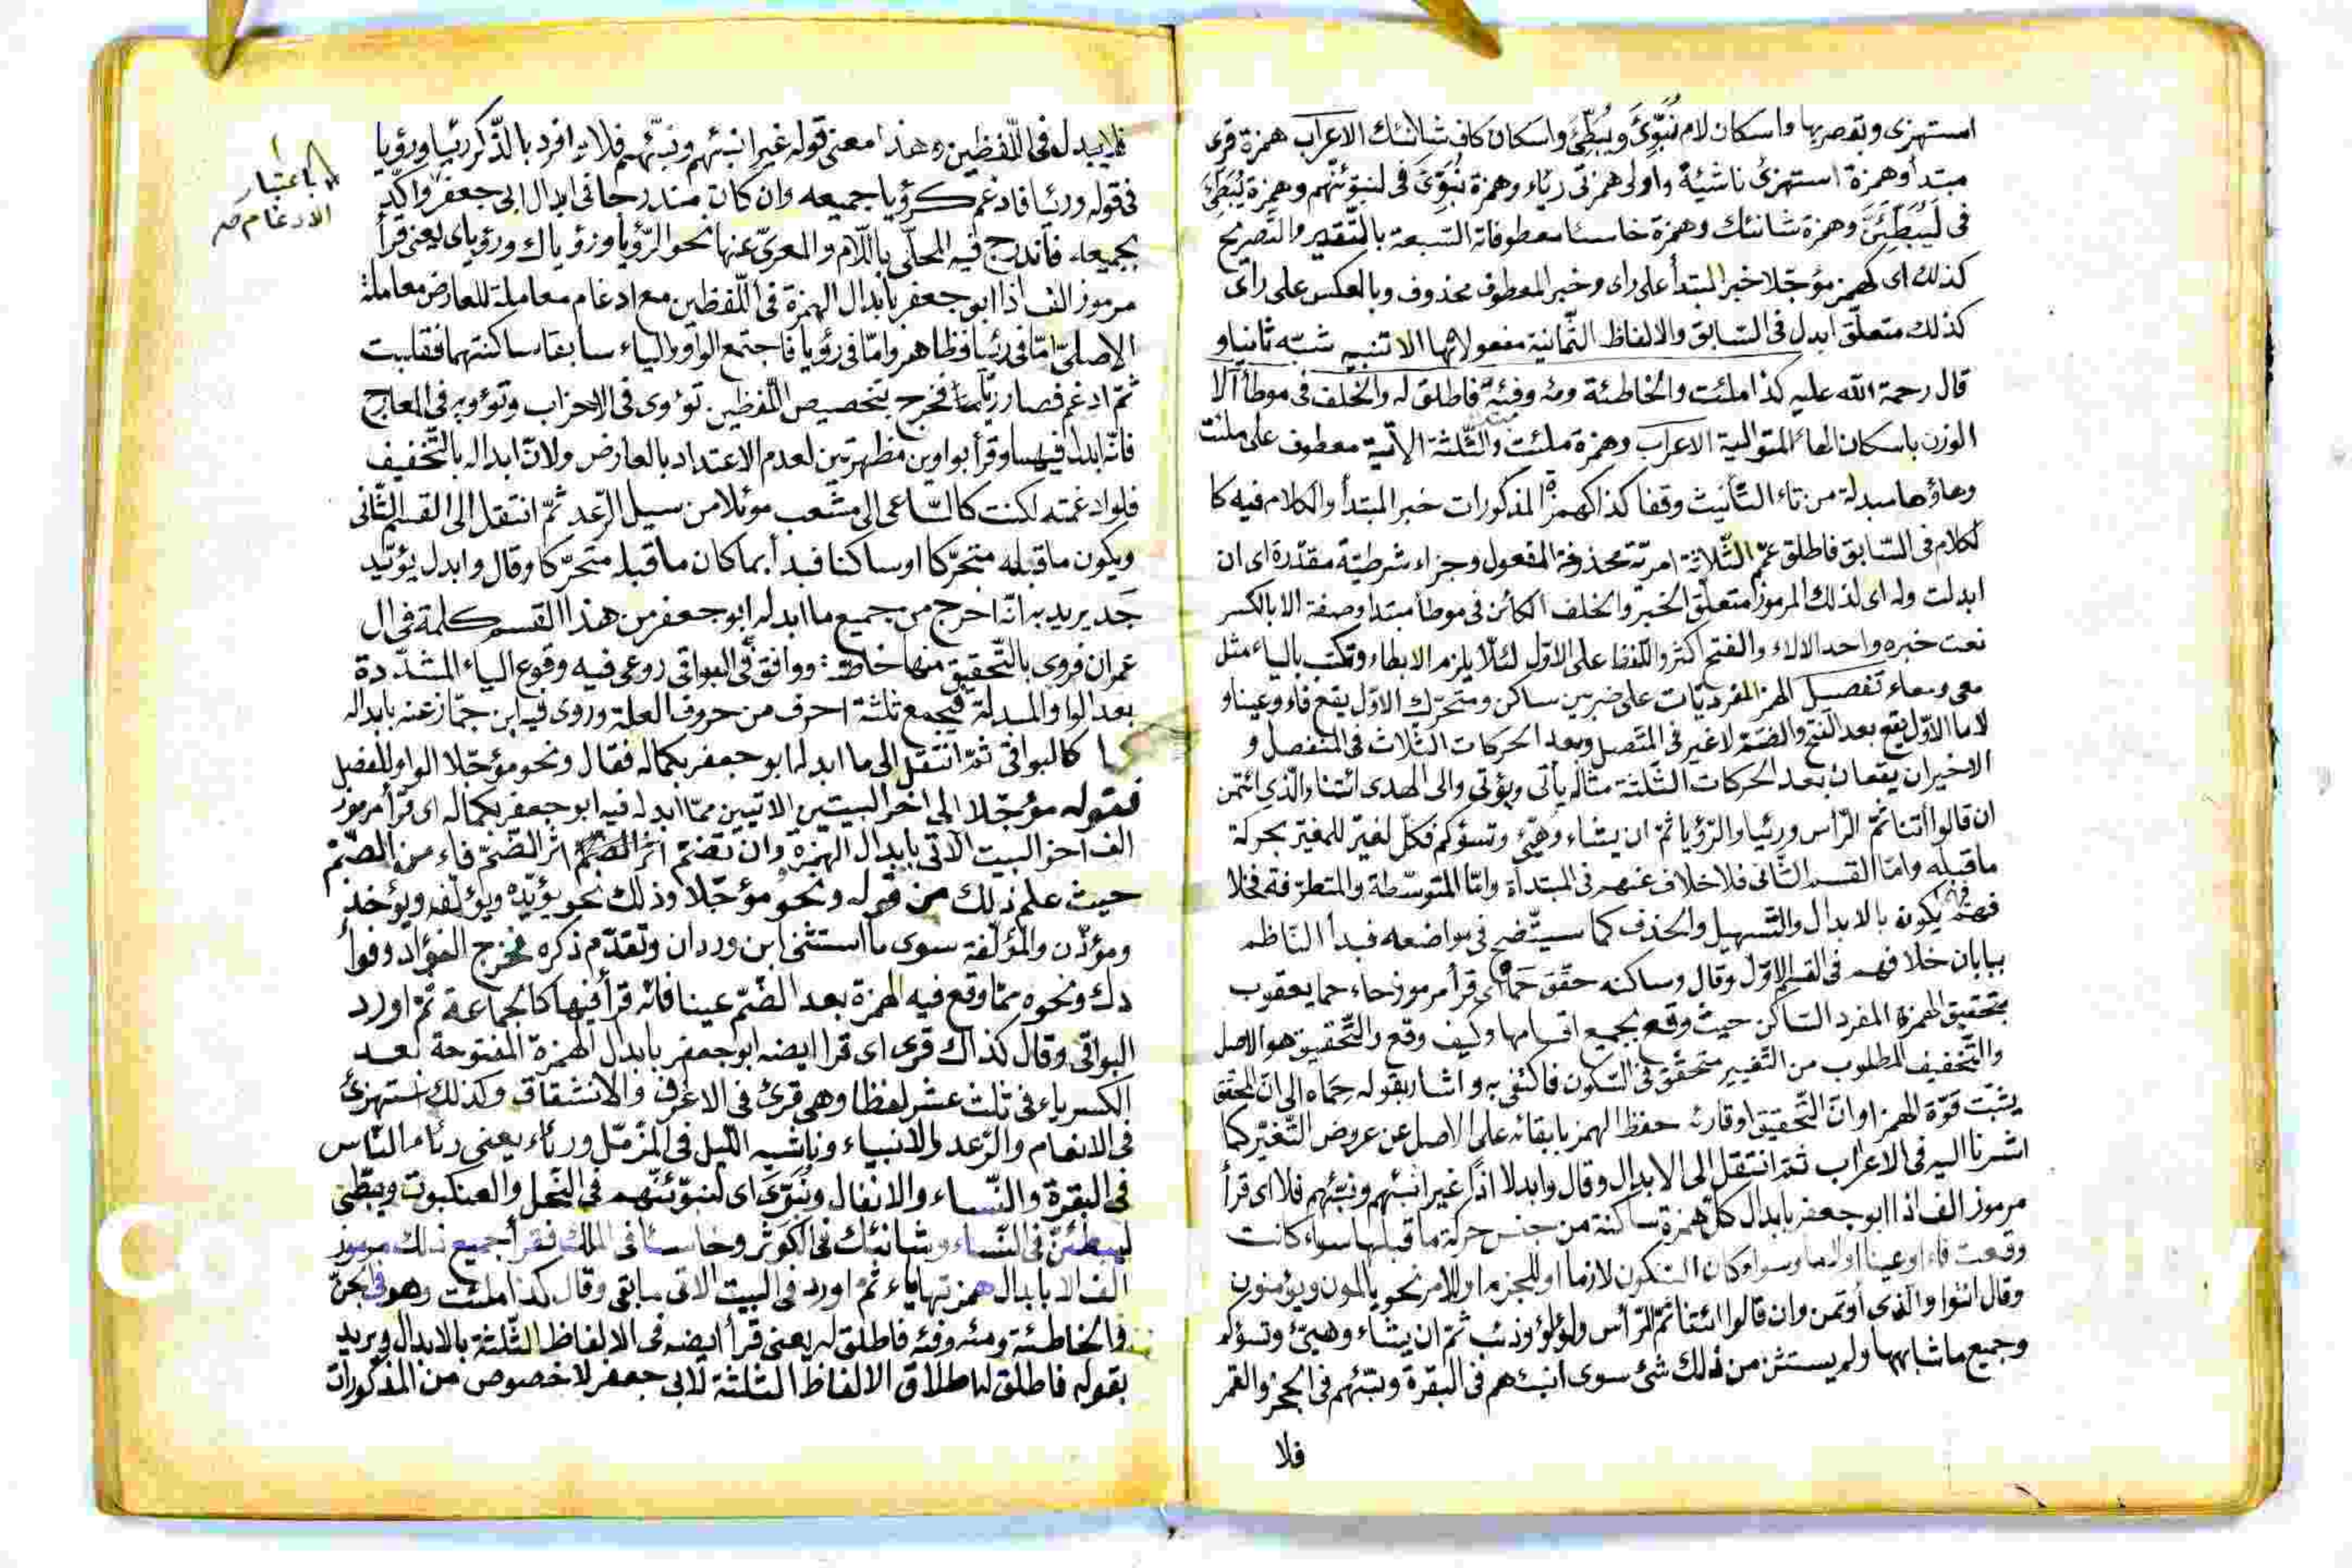 استهزى وبقصريها واسكان لام نُبَوِّئَ ويُبَطِّئَ واسكان كاف شانئك الاعراب همزة قرى
مبتدأ وهمزة استهزئ ناشيئة واولى همزتى رئاء وهمزة نُبَوِّئَ فى لنبوئنهم وهمزة يُبَطِّئَ
فى لَيُبَطِّئَنَّ وهمزة شانئك وهمزة خاسئا معطوفاته السبعة بالتقدير والتصريح
كذلك اى كهمز مؤجّلا خبر المبتدأ على راى وخبر المعطوف محذوف وبالعكس على راى
كذلك متعلّق ابدل فى السّابق والالفاظ الثمانية مفعولاتها الا تنبيه شبّه ثانيا و
قال رحمة الله عليه كذا ملئت والخاطئة ومئه وفئة فاطلق له والخلف فى موطأ الا
الوزن باسكان الهائ المتوالية الاعراب وهمزة ملئت والثّلثة الآتية معطوف على ملئت
وهاؤها مبدلة من تاء التأنيث وقفا كذا كهمز المذكورات خبر المبتدأ والكلام فيه كا
لكلام فى السّابق فاطلق عمّ الثّلاثة امريّة محذوفة المفعول وجزاء شرطيّة مقدّرة اى ان
ابدلت وله اى لذلك المرموز متعلّق الخبر والخلف الكائن فى موطأ مبتدا وصفة الا بالكسر
نعت خبره واحد الالاء والفتح اكثر واللّفظا على الاوّل لئلّا يلزم الابطاء وتكتب بالياء مثل
معى ومعاء تفصيل الهمز المفرد يّات على ضربين ساكن ومتحرّك الاوّل يقع فاء وعينا و
لاما الاوّل يقع بعد الفتح والضمّ لا غير فى المتّصل وبعد الحركات الثّلاث فى المنفصل و
الاخيران يقعان بعد الحركات الثّلثة مثاله يأتى ويؤتى والى الهدى ائتنا والّذى ائتمن
ان قالوا أتنا ثمّ الرّأس ورئيا والرّؤيا ثمّ ان يشاء وهيّئ وتسؤكم فكلّ لغيرّ للمغيّر بحركة
ماقبله وامّا القسم الثّانى فلا خلاف عنهم فى المبتدأة وامّا المتوسّطة والمتطرّفة فخلا
فهم يكون بالابدال والتّسهيل والحذف كما سيتّضح فى مواضعه فبدأ النّاظم
ببابان خلافهم فى القسم الاوّل وقال وساكنه حقّق حَمَاهُ اى قرأ مرموز حاء حما يعقوب
بتحقيق الهمزة المفرد السّاكن حيث وقع بجميع اقسامها وكيف وقع والتّحقيق هو الاصل
والتّخفيف المطلوب من التّغيير متحقّق فى السّكون فاكتفى به واشار بقوله حِمَاه الى انّ المحقّق
يثبت قوّة الهمز او انّ التّحقيق او قارئه حفظ الهمز بابقائه على الاصل عن عروض التّغيّر كما
اشرنا اليه فى الاعراب ثمّ انتقل الى الابدال وقال وابدلا اذًا غير انبئهم ونبّئهم فلا اى قرأ
مرموز الف اذا ابو جعفر بابدال كلّ همزة ساكنة من جنس حركة ماقبلها سواء كانت
وقعت فاء او عينا او لاما وسواء كان السّكون لازما او للجزم او للامر نحو يالمون ويؤمنون
وقال ائتوا والّذى أوتمن وان قالوا ائتنا ثمّ الرّأس ولؤلؤ وذئب ثمّ ان يشاء وهيّئ وتسؤكم
وجميع ماشابهها ولم يستثن من ذلك شئ سوى انبئهم فى البقرة ونبّئهم فى الحجر والقمر
فلا
فلا يبدله فى اللّفظين هذا معنى قوله غير انبئهم ونبّئهم فلا ثم افرد بالذّكر رئيا ورؤيا
فى قوله ورئيا فادغم كرؤيا جميعه وان كان مندرجا فى ابدال ابى جعفر واكّد
بجميعه فاندرج فيه المحلّى باللّام والمعرىّ عنها نحو الرّؤيا ورؤياك ورؤياى يعنى قرأ
مرموز الف اذا ابو جعفر بابدال الهمزة فى اللّفظين مع ادغام معاملة للعارض معاملة
الاصلىّ امّا فى رئيا فظاهر وامّا فى رؤيا فاجتمع الواو والياء سابقا ساكنتهما فقلبت
ثمّ ادغم فصار ريّا فخرج بتخصيص اللّفظين تؤوى فى الاحزاب وتؤويه فى المعارج
فانّه ابدل فيهما وقرأ بواوين مظهرتين لعدم الاعتداد بالعارض ولانّ ابداله بالتّخفيف
فلو ادغمته لكنت كالسّاعى الى مثعب موئلا من سبيل الرّعد ثمّ انتقل الى القسم الثّانى
ويكون ماقبله متحرّكا او ساكنا فبدأ بما كان ماقبله متحرّكا وقال وابدل يؤيّد
جَد يريد به انّه اخرج من جميع ما ابدله ابو جعفر من هذا القسم كلمة فى ال
عمران فروى بالتّحقيق منها خاصّة ووافق فى البواقى روعى فيه وقوع الياء المشدّدة
بعد الواو المبدلة فيجمع ثلثة احرف من حروف العلّة وروى فيه ابن جمّاز عنه بابداله
كالبواقى ثمّ انتقل الى ما ابدله ابو جعفر بكماله فقال ونحو مؤجّلا الواو للفصل
فقوله مؤجّلا الى اخر البيتين الاتيين ممّا ابدله فيه ابو جعفر بكماله اى قرأ مرموز
الف اخر البيت الآتى بابدال الهمزة وان تضمّ اثر الضّمّ فاء من الضّمّ
حيث علم ذلك من قوله ونحو مؤجّلا وذلك نحو يؤيّده ويؤلّفه ويؤخذ
ومؤذّن والمؤلّفة سوى ما استثنى ابن وردان وتقدّم ذكره فخرج الفؤاد وفؤا
دك ونحوه ممّا وقع فيه الهمزة بعد الضّمّ عينا فانّه قرأ فيها كالجماعة ثمّ اورد
البواقى وقال كذاك قرى اى قرا ايضه ابو جعفر بابدال الهمزة المفتوحة بعد
الكسر ياء فى ثلث عشر لفظا وهى قرئ فى الاعراف والانشقاق وكذلك استهزئ
فى الانعام والرّعد والانبياء وناشيه اللّيل فى المزّمّل ورئاء يعنى رئاء النّاس
فى البقرة والنّساء والانفال ونُبَوِّئَ اى لنبوّئنّهم فى النّحل والعنكبوت ويبطّئ
ليبطّئنّ فى النّساء وشانئك فى الكوثر وخاسئا فى الملك فقرأ جميع ذلك مرموز
الف الا بابدال همزتها ياء ثمّ اورد فى البيت الاتى مابقى وقال كذا ملئت وهو فى الجنّ
والخاطئة ومئه وفئه فاطلق له يعنى قرأ ايضه فى الالفاظ الثّلثة بالابدال ويريد
بقوله فاطلق له اطلاق الالفاظ الثّلثة لابى جعفر لا خصوص من المذكورات
باعتبار
الادغام صح